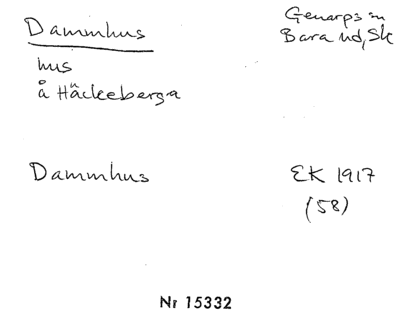 Dammhus
Genarps sn
Bara hd, Sk
hus
å Häckeberga
Dammhus
EK 1917
(58)
Nr 15332